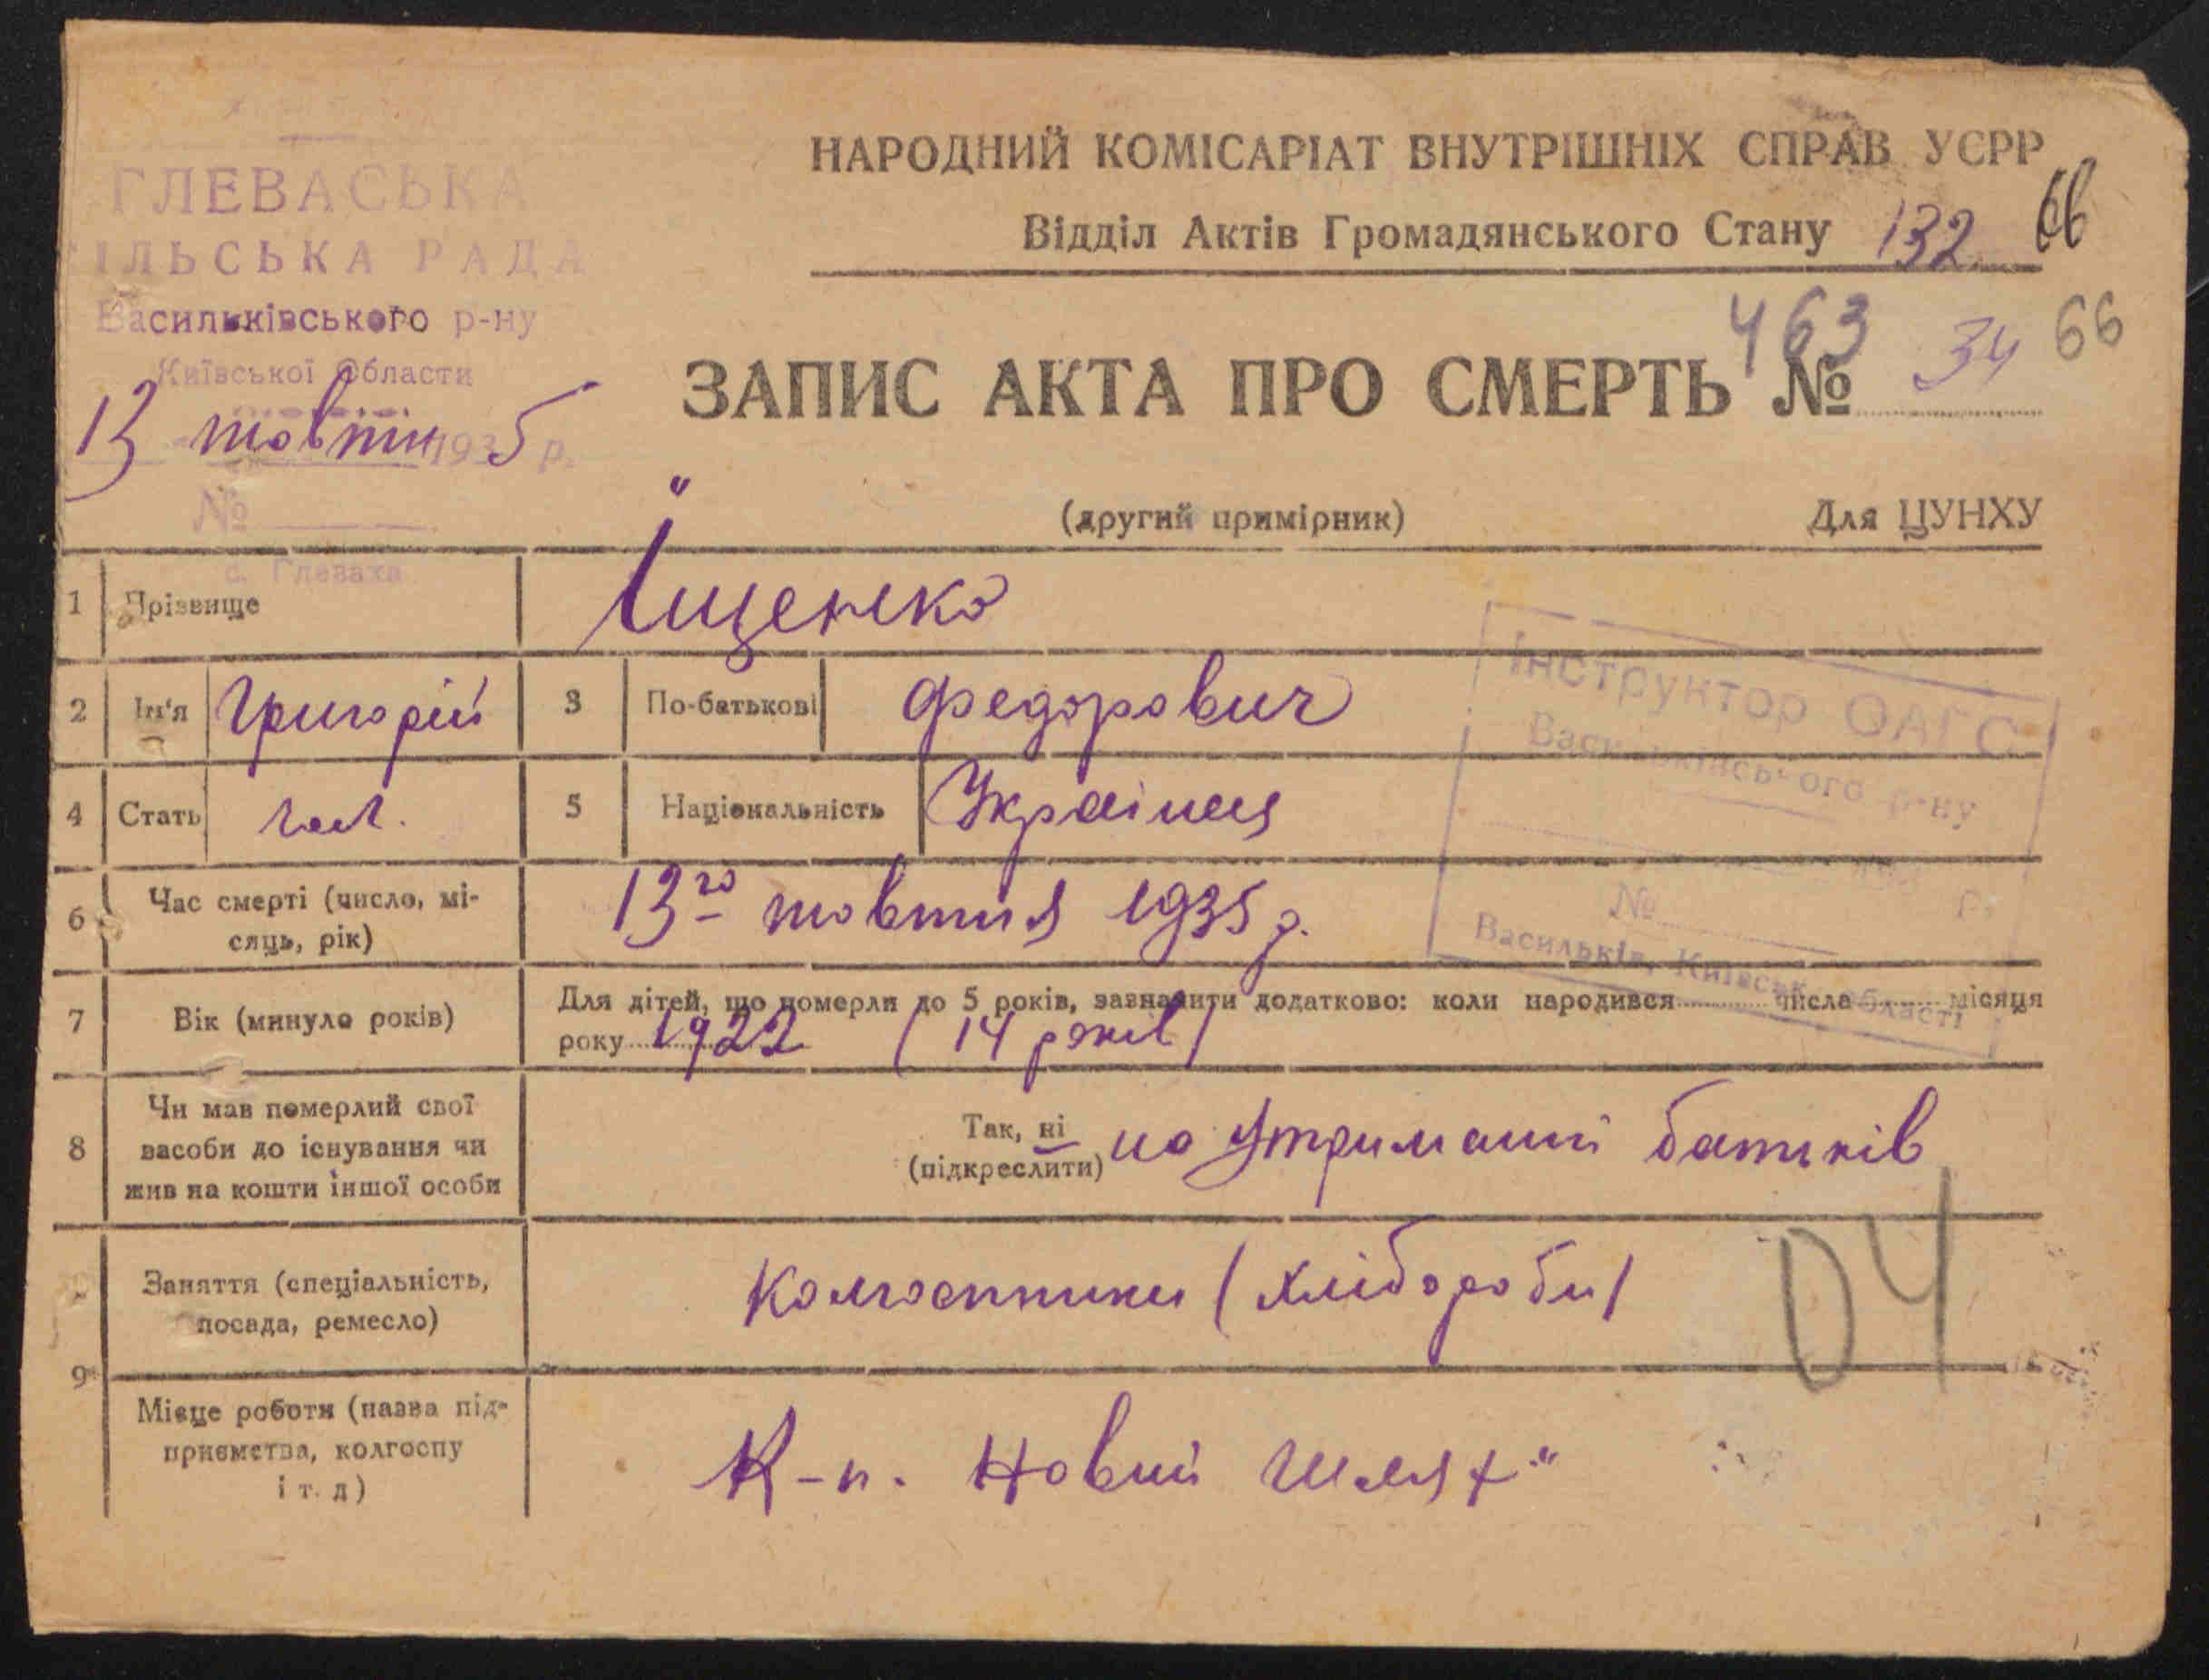 ГЛЕВАСЬКА
СІЛЬСЬКА РАДА
Васильківського р-ну
Київської Области
13 жовтня 1935 р.
№
с. Глеваха
НАРОДНИЙ КОМІСАРІАТ ВНУТРІШНІХ СПРАВ УСРР
Відділ Актів Громадянського Стану 132 66
463 66
ЗАПИС АКТА ПРО СМЕРТЬ № 34
(другий примірник) Для ЦУНХУ
1 Прізвище Іщенко
2 Ім'я Григорій 3 По-батькові Федорович
4 Стать чол. 5 Національність Українец
Інструктор ОАГС
Васильківського р-ну
№ р.
Васильків, Київськ. області
6 Час смерті (число, мі-
сяць, рік) 13го жовтня 1935 р.
7 Вік (минуло років) Для дітей, що померли до 5 років, зазначити додатково: коли народився числа місяця
року 1922 (14 років)
8 Чи мав померлий свої
засоби до існування чи
жив на кошти іншої особи
Так, ні
(підкреслити) на утриманні батьків
9 Заняття (спеціальність,
посада, ремесло) Колгоспники (хлібороби) 04
Місце роботи (назва під-
приємства, колгоспу
і т. д) К-п. Новий шлях"